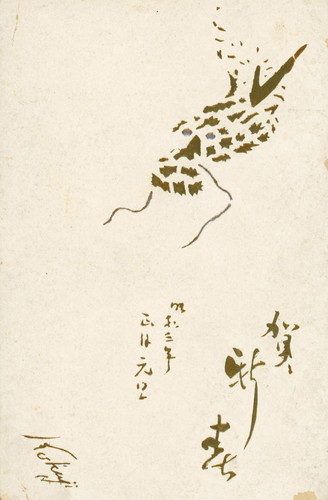 賀新春
昭和三年
正月元旦